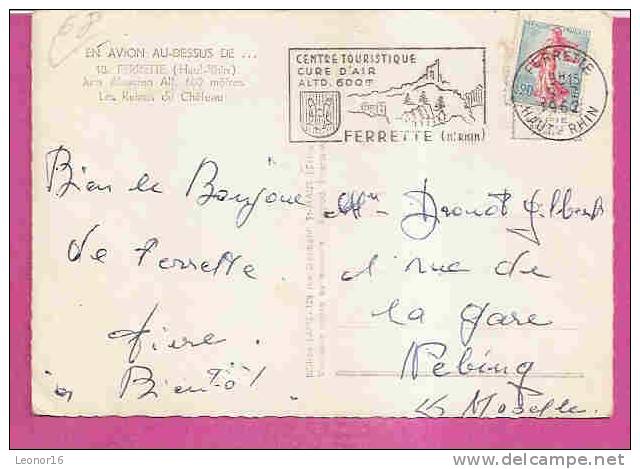 68
EN AVION AU-DESSUS DE ...
10. FERRETTE (Haut-Rhin)
Jura Alsacien Alt. 600 mètres
Les Ruines du Château
CENTRE TOURISTIQUE
CURE D'AIR
ALTD. 600m
FERRETTE (Ht RHIN)
0,20
FERRETTE
HAUT-RHIN
Bien le Bonjour
de Ferrette.
à Bientôt
Mr Drouot Gilbert
1 rue de
la gare
Nébing
Moselle
Leonor16
www.delcampe.net